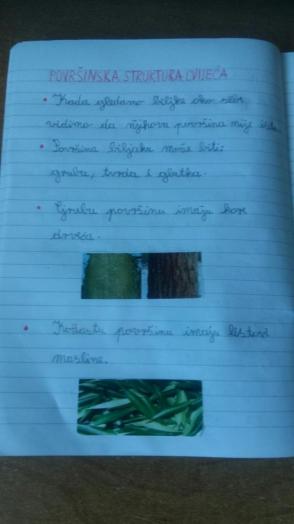 POVRŠINSKA STRUKTURA CVIJEĆA
• Kada gledamo biljke oko sebe,
vidimo da njihova površina nije ista.
• Površina biljaka može biti:
gruba, tvrda i glatka.
• Grubu površinu imaju kore
drveća.
• Kožastu površinu imaju listovi
masline.